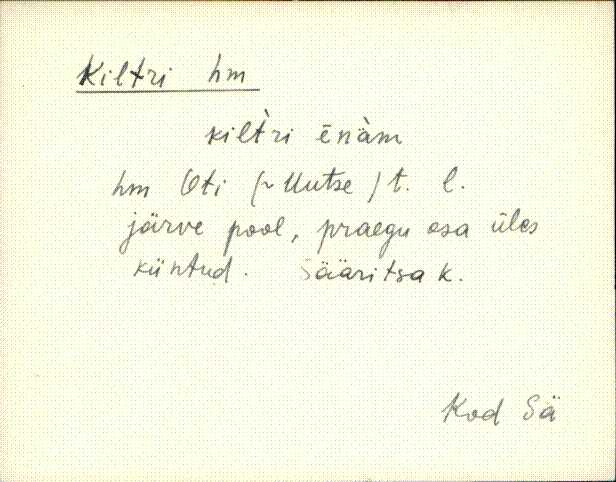 Kiltri hm
kilt̀ri ēnàm
hm Oti (~ Uutse) t. l.
järve pool, praegu osa üles
küntud. Sääritsa k.
Kod Sä